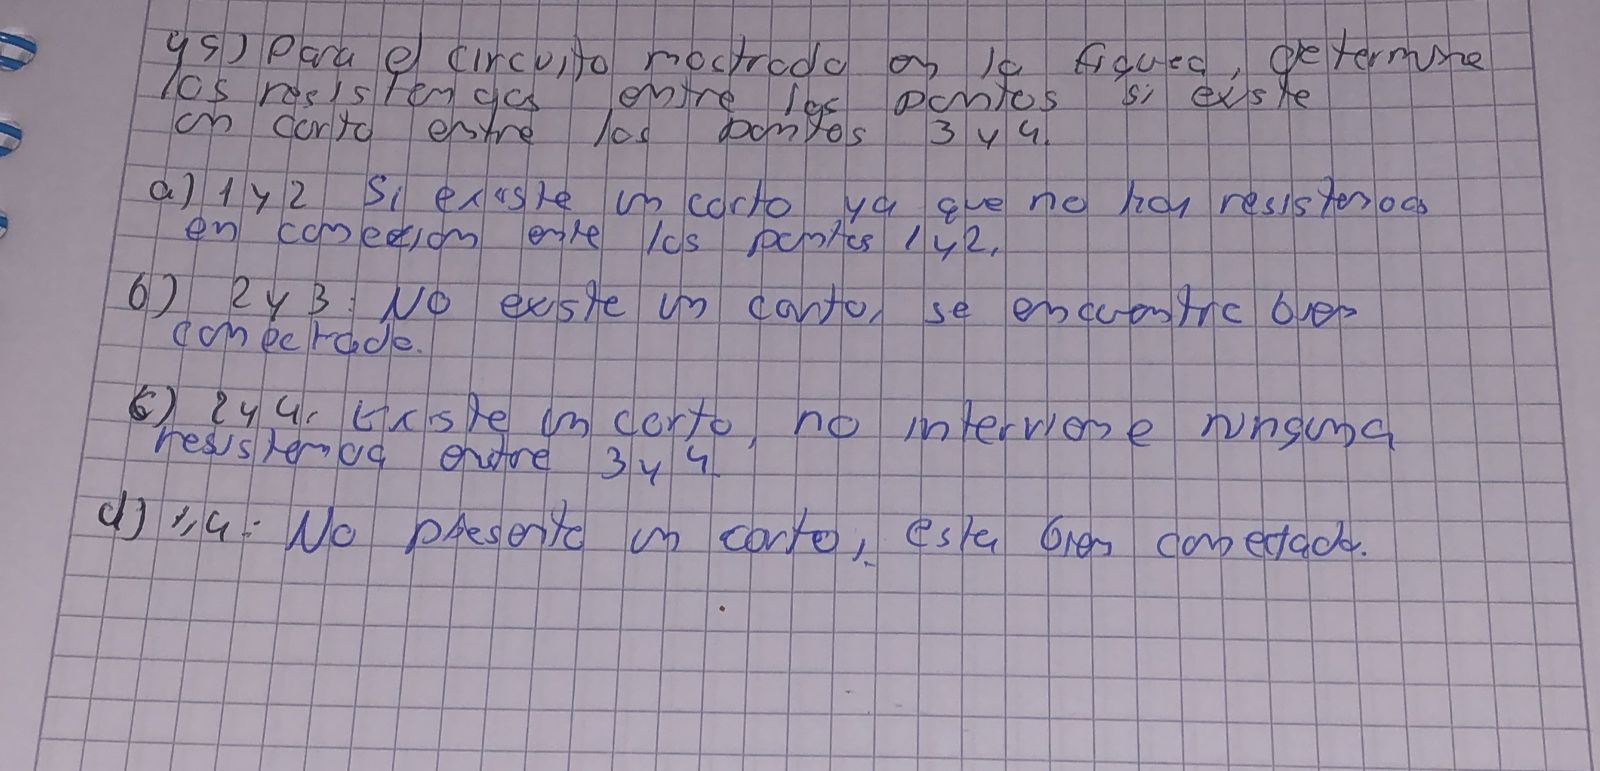 45) Para el circuito mostrado en la figura, determine
las resistencias entre los puntos si existe
un corto entre los puntos 3 y 4.
a) 1 y 2 Si existe un corto ya que no hay resistencias
en conexion entre los puntos 1 y 2.
b) 2 y 3: No existe un corto, se encuentra bien
conectado.
c) 2 y 4: Existe un corto, no interviene ninguna
resistencia entre 3 y 4
d) 1, 4: No presenta un corto, esta bien conectado.